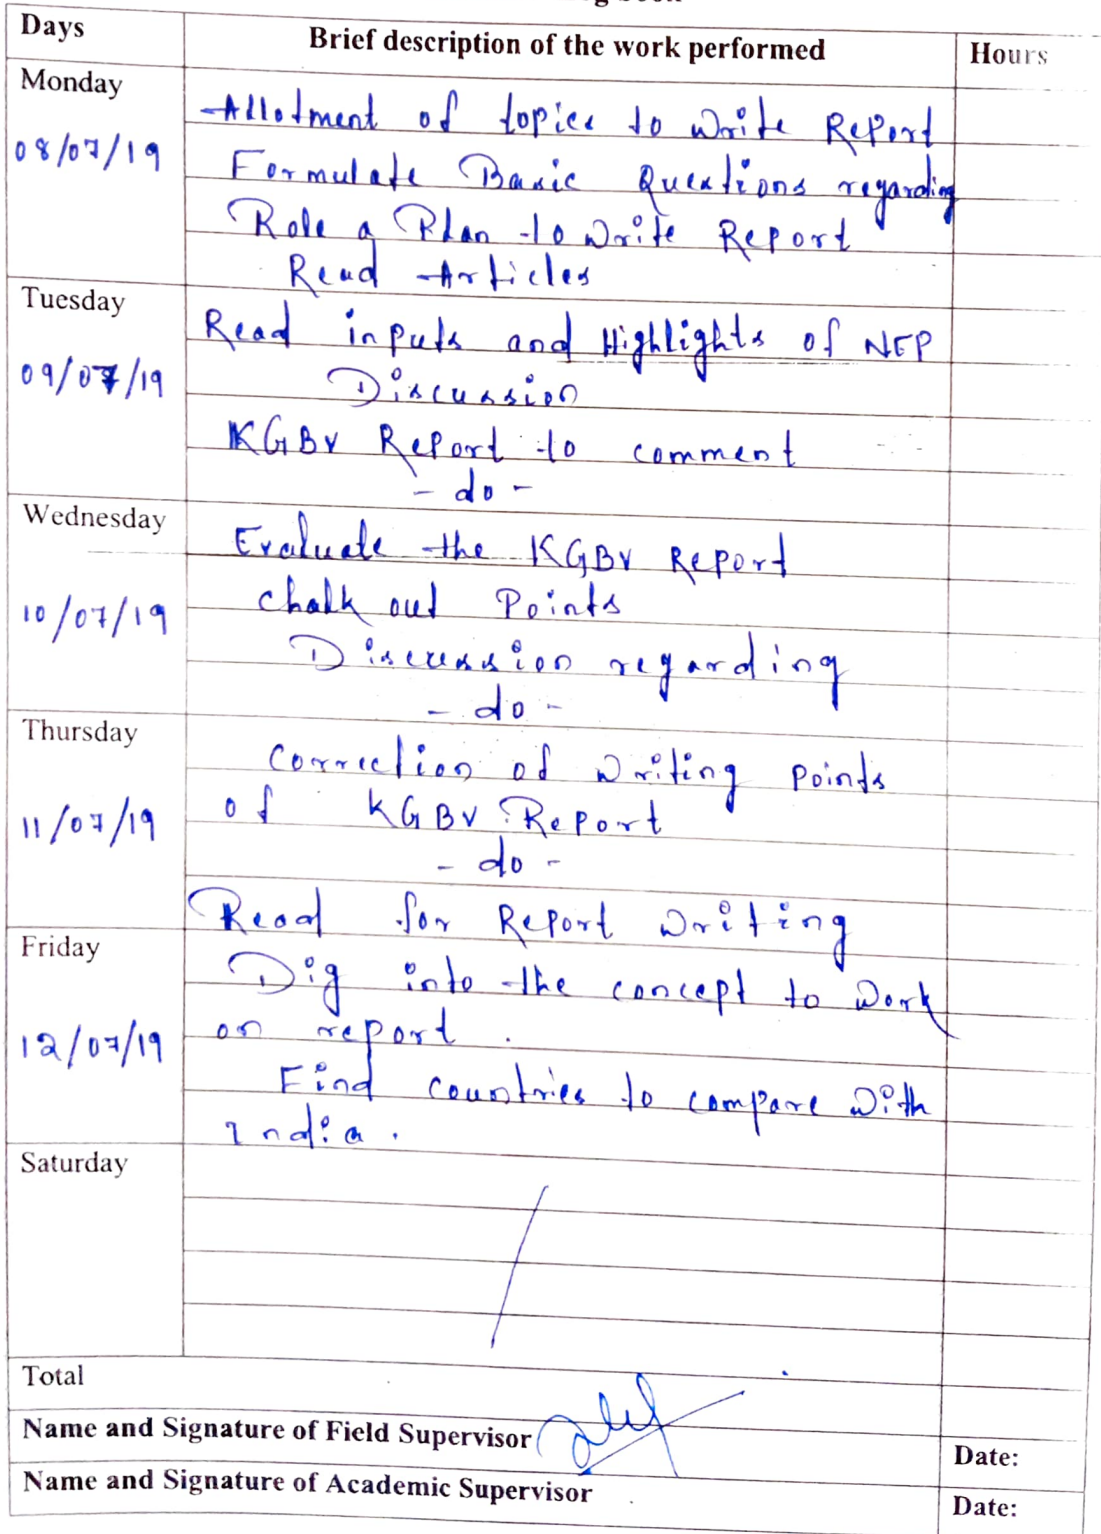 Days Brief description of the work performed Hours
Monday
Allotment of topics to Write Report
08/07/19
Formulate Basic Questions regarding
Role a Plan to Write Report
Read Articles
Tuesday
Read inputs and Highlights of NEP
09/07/19
Discussion
KGBV Report to comment
- do -
Wednesday
Evaluate the KGBV Report
10/07/19
chalk out Points
Discussion regarding
- do -
Thursday
Correction of Writing Points
11/07/19
of KGBV Report
- do -
Read for Report Writing
Friday
Dig into the concept to Work
12/07/19
on report.
Find countries to compare With
India.
Saturday
Total
Name and Signature of Field Supervisor
Date:
Name and Signature of Academic Supervisor
Date: